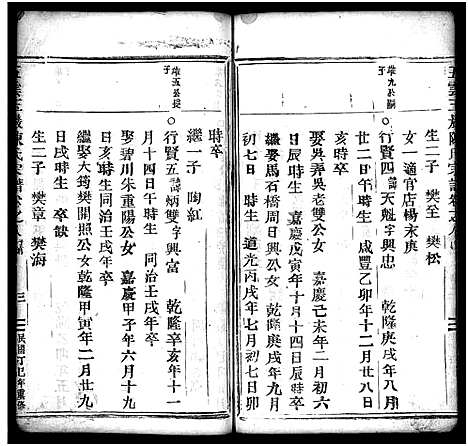 生二子　樊至　樊松
二　適官店楊永庚
榮九公嗣子
○行賢四諱天魁字興忠　　乾隆庚戌年八月
廿二日午時生　咸豐乙卯年十二月廿八日
娶吳弄吳老雙公女　嘉慶己未年二月初六
日辰時生　嘉慶戊寅年十月十四日辰時卒
繼娶馬石橋周　　嘉慶戊午年四月
初七日　時生　道光丙戌年七月初七日卯
時卒
繼一子　陶紅
榮五公長子
○行賢五諱炳雙字興富　　乾隆辛亥年十一
月十四日午時生　同治壬戌年卒
娶碧川朱重陽公女　嘉慶甲子年六月十九
繼娶大筠樊開照公女　乾隆甲寅年二月廿九
日戌時生　卒缺
生二子　樊章　樊海
三
民國丁巳年重修